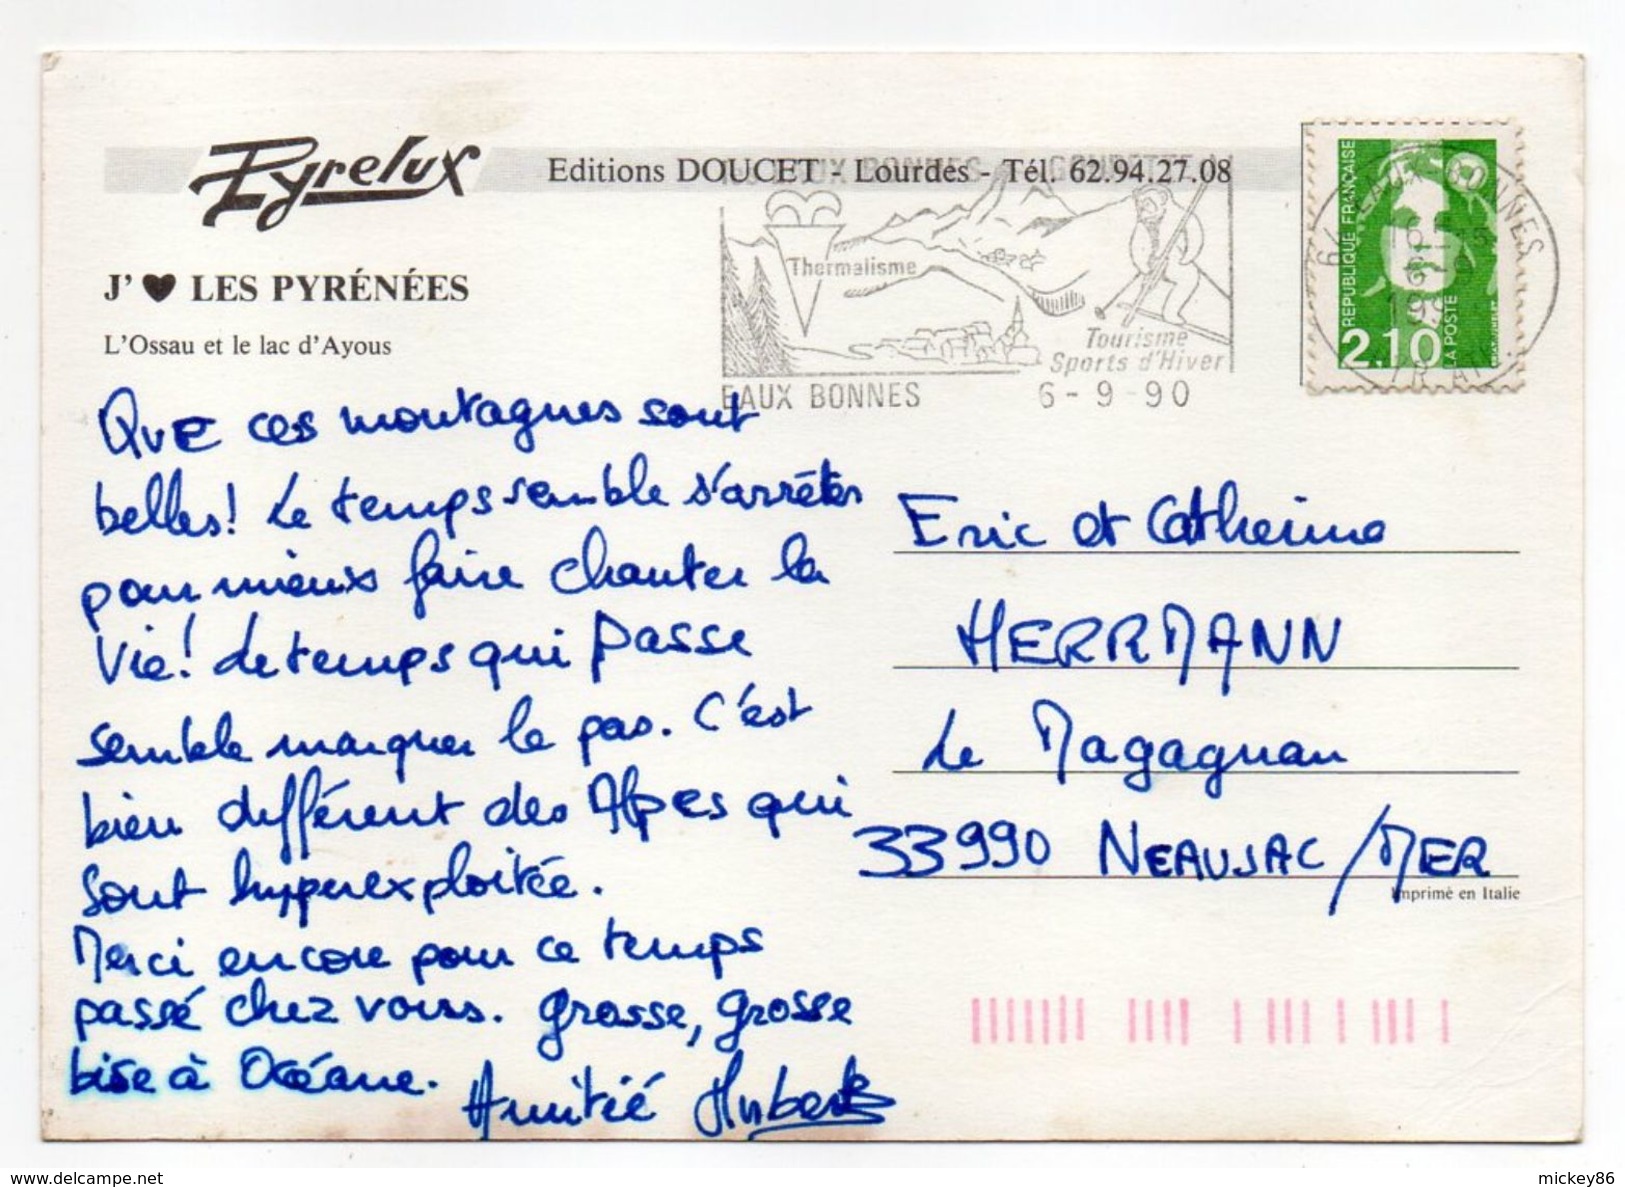 Pyrelux
Editions DOUCET - Lourdes - Tél. 62.94.27.08
J'♥ LES PYRÉNÉES
L'Ossau et le lac d'Ayous
Thermalisme
Tourisme
Sports d'Hiver
EAUX BONNES 6-9-90
64 EAUX-BONNES
RÉPUBLIQUE FRANÇAISE
LA POSTE
2,10
Que ces montagnes sont
belles! Le temps semble s'arrêter
pour mieux faire chanter la
vie! Le temps qui passe
semble marquer le pas. C'est
bien différent des Alpes qui
sont hyperexploitée.
Merci encore pour ce temps
passé chez vous. Grosse, grosse
bise à Océane.
Amitié Hubert
Eric et Catherine
HERRMANN
Le Magagnan
33990 NEAUJAC/MER
Imprimé en Italie
mickey86